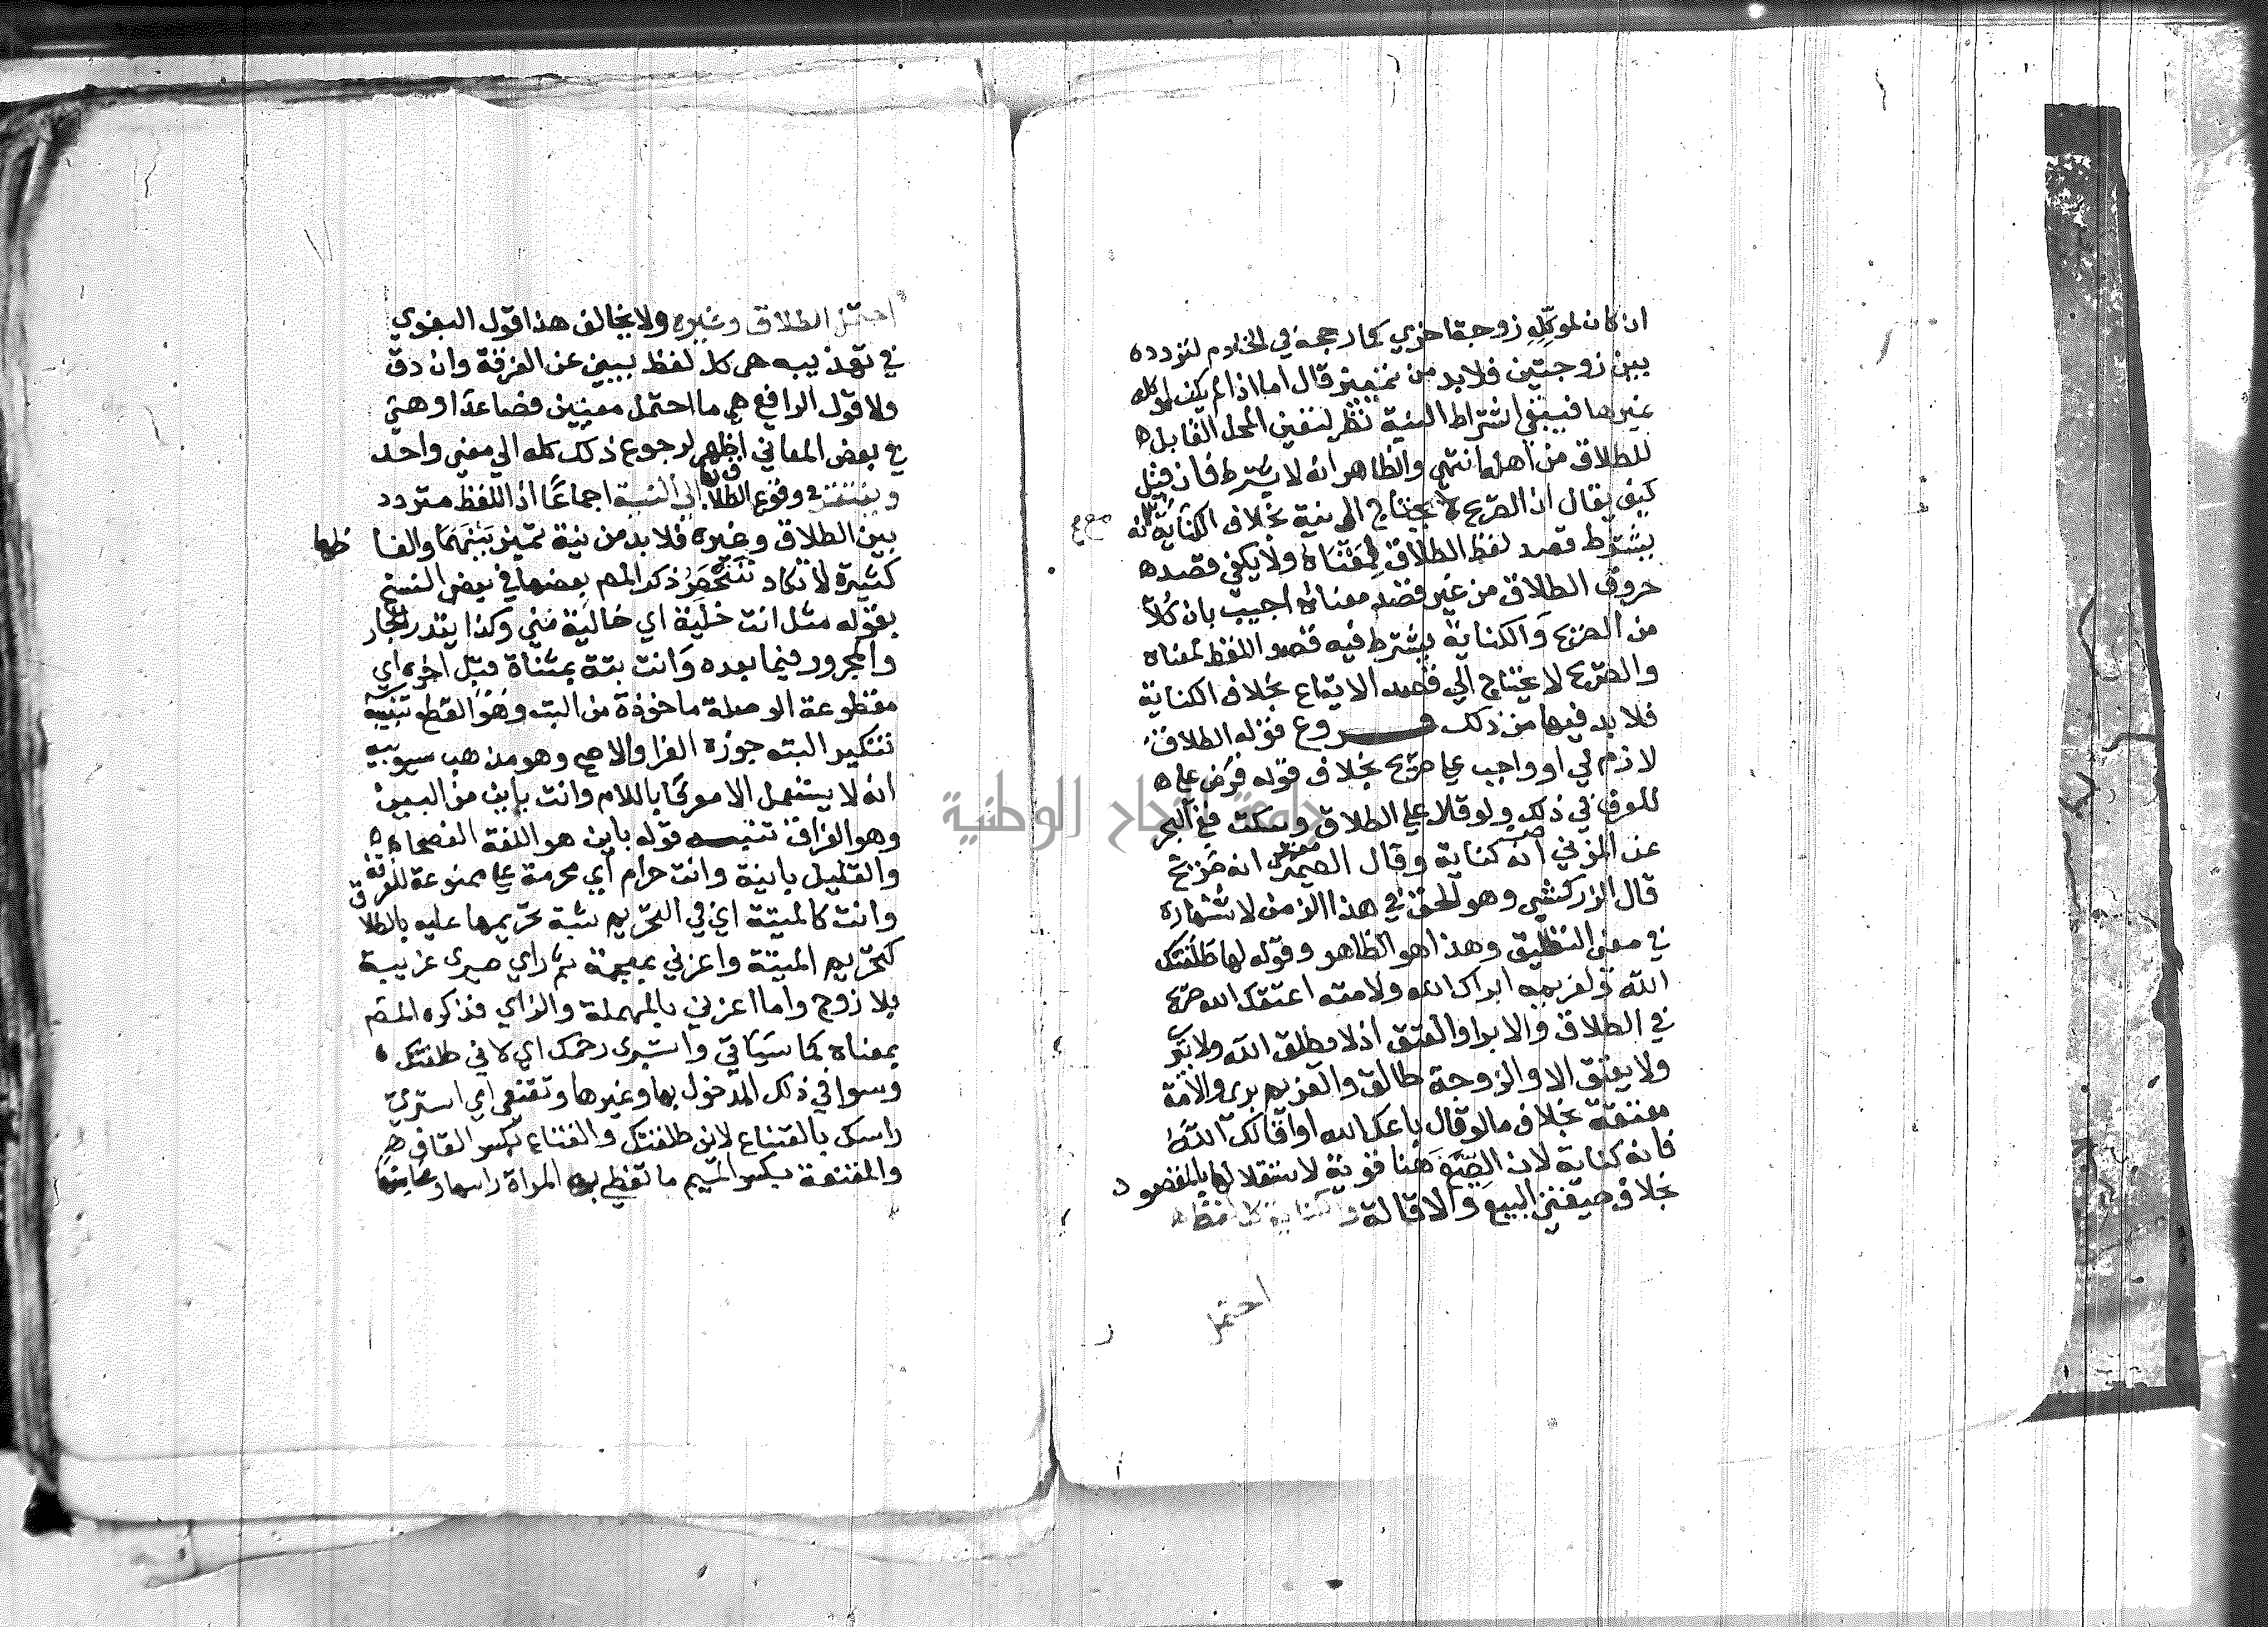 ان كان لموكله زوجة اخري كما رجحه في الخادم لتردده
بين زوجتين فلابد من تمييز قال اما اذا لم يكن لموكله
غيرها فينبغي اشتراط النية نظر لتعين المحل القابل
للطلاق من اهله انتهي والظاهر انه لا يشترط فان قيل
كيف يقال ان الصريح لا يحتاج الي نية بخلاف الكناية مع انه
يشترط قصد لفظ الطلاق لمعناه ولا يكفي قصده
حروف الطلاق من غير قصد معناه اجيب بان كلا
من الصريح والكناية يشترط فيه قصد اللفظ لمعناه
والصريح لا يحتاج الي قصد الايقاع بخلاف الكناية
فلا بد فيها من ذلك فروع قوله الطلاق
لازم لي او واجب علي صريح بخلاف قوله فرض علي
للعرف في ذلك ولو قال علي الطلاق وسكت في البحر
عن المزني انه كناية وقال الصيمري انه صريح
قال الزركشي وهو الحق في هذا الزمن لاشتهاره
في معني التطليق وهذا هو الظاهر وقوله لها طلقتك
الله ولغريمه ابراك الله ولامته اعتقك الله صريح
في الطلاق والابرا والعتق اذ لا يطلق الله ولا يبري
ولا يعتق الا والزوجة طالق والغريم بري والامة
معتقة بخلاف ما لو قال باعك الله او اقالك الله
فانه كناية لان الصيغ هنا قوية لاستقلالها بالمقصود
بخلاف صيغتي البيع والاقالة والكناية كل لفظ
احتمل
احتمل الطلاق وغيره ولا يخالف هذا قول البغوي
في تهذيبه هي كل لفظ يبني عن الفرقة وان دق
ولا قول الرافعي هي ما احتمل معنيين فصاعدا وهي
في بعض المعاني اظهر لرجوع ذلك كله الي معني واحد
ويفتقر وقوع الطلاق بها الي النية اجماعا اذ اللفظ متردد
بين الطلاق وغيره فلابد من نية تميز بينهما والفاظها
كثيرة لا تكاد تنحصر ذكر المص بعضها في بعض النسخ
بقوله مثل انت خلية اي خالية مني وكذا يقدر الجار
والمجرور فيما بعده وانت بتة بمثناة قبل اخره اي
مقطوعة الوصلة ماخوذة من البت وهو القطع تنبيه
تنكير البته جوزه الفرا والاصح وهو مذهب سيبويه
انه لا يستعمل الا معرفا باللام وانت باين من البين
وهو الفراق تنبيه قوله باين هو اللغة الفصحا
والقليل باينة وانت حرام اي محرمة علي ممنوعة للفرقة
وانت كالميتة اي في التحريم شبة تحريمها عليه بالطلاق
كتحريم الميتة واغربي بمعجمة ثم راي صيري غريبة
بلا زوج واما اعزبي بالمهملة والزاي فذكره المص
بمعناه كما سياتي واستبري رحمك اي لاني طلقتك
وسوا في ذلك المدخول بها وغيرها وتقنعي اي استري
راسك بالقناع لاني طلقتك والقناع بكسر القاف
والمقنعة بكسر الميم ما تغطي به المراة راسها ومحاسنها
جامعة النجاح الوطنية